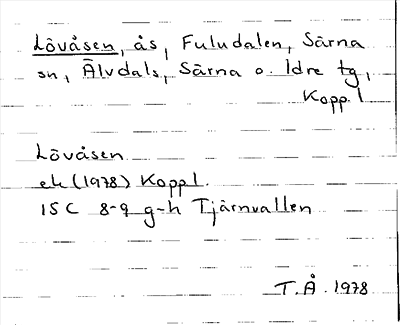 Lövåsen, ås, Fuludalen, Särna
sn, Älvdals, Särna o. Idre tg,
Kopp. l
Lövåsen
ek (1978) Koppl.
15C 8-9 g-h Tjärnvallen
T.Å. 1978